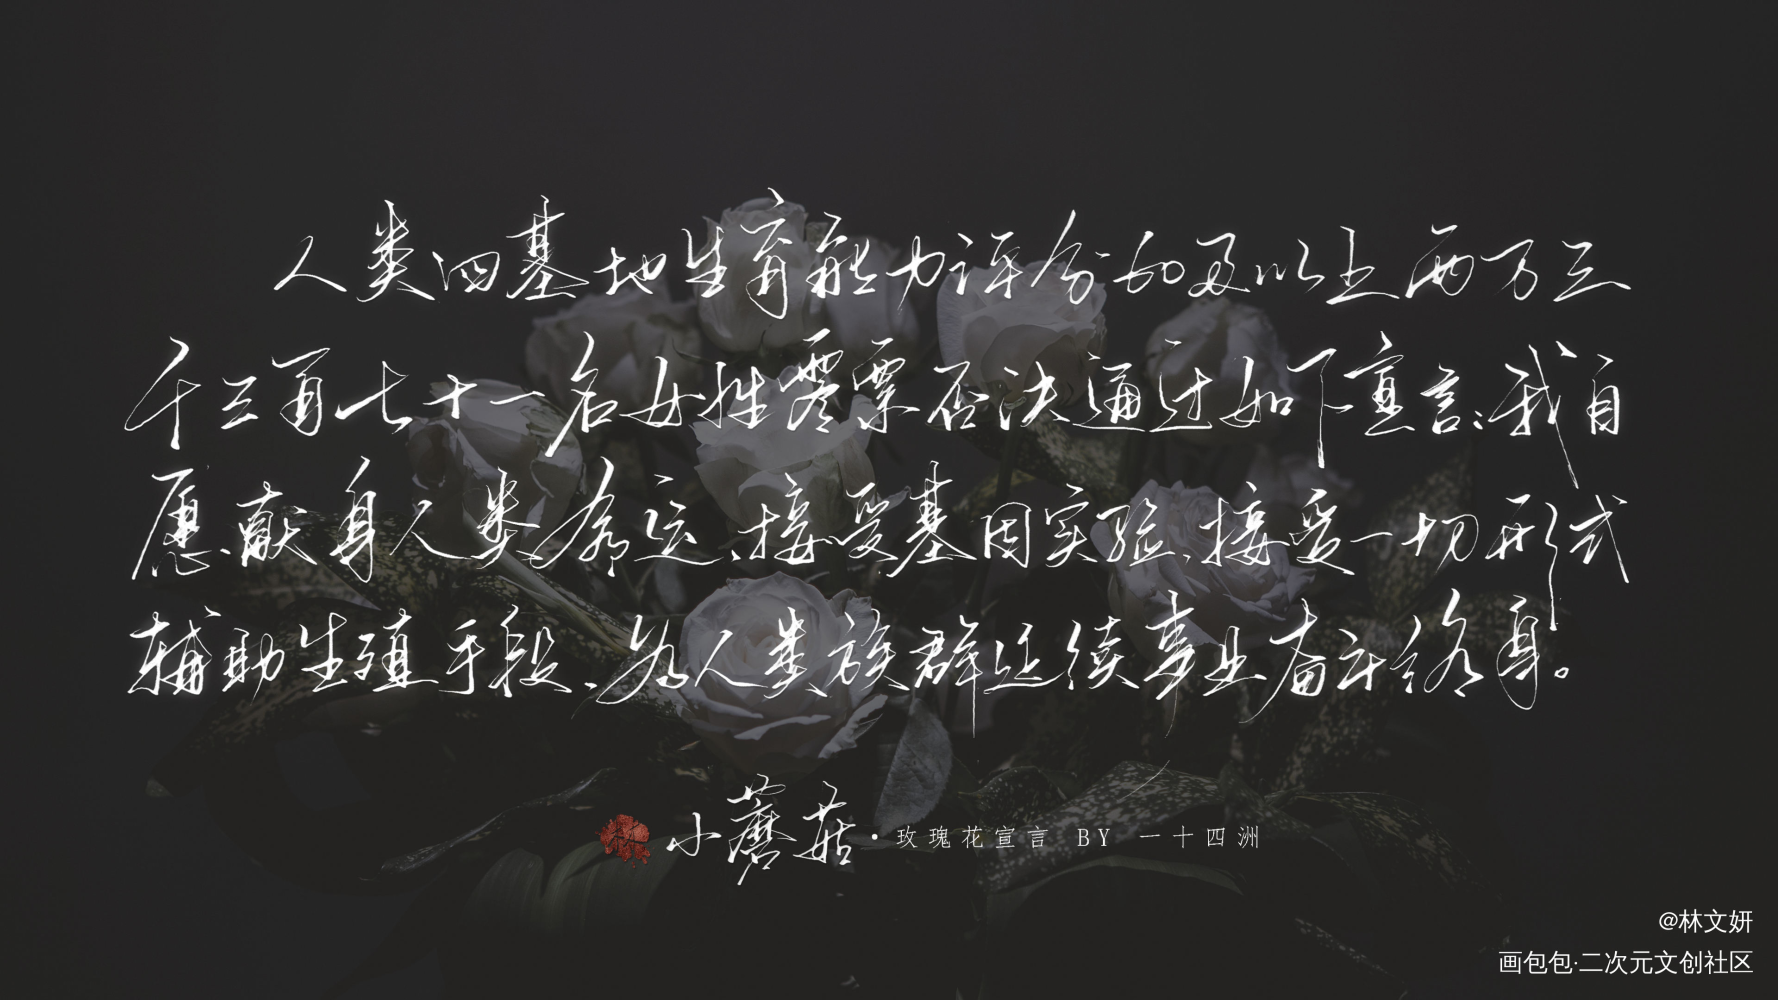 人类四基地生育能力评分60及以上两万三
千三百七十一名女性零票否决通过如下宣言:我自
愿献身人类命运、接受基因实验、接受一切形式
辅助生殖手段、为人类族群延续事业奋斗终身。
小蘑菇·玫瑰花宣言 BY 一十四洲
@林文妍
画包包·二次元文创社区